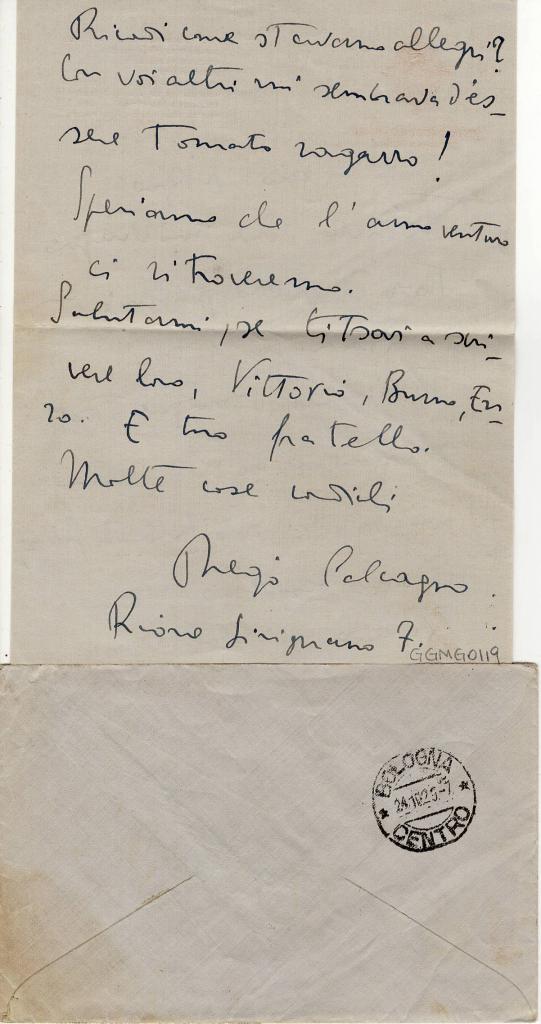 Ricordi come stavamo allegri?
Con voi altri mi sembrava d'es-
sere tornato ragazzo!
Speriamo che l'anno venturo
ci ritroveremo.
Salutami, se ti trovi a scri-
vere loro, Vittorio, Bruno, En-
zo. E tuo fratello.
Molte cose cordiali
Diego Calcagno
Rione Sirignano 7.
GGMG0119
BOLOGNA
CENTRO